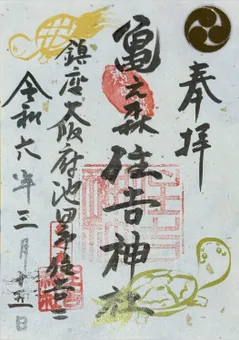 奉拝
亀之森住吉神社
鎮座大阪府池田市住吉二
令和六年三月十五日